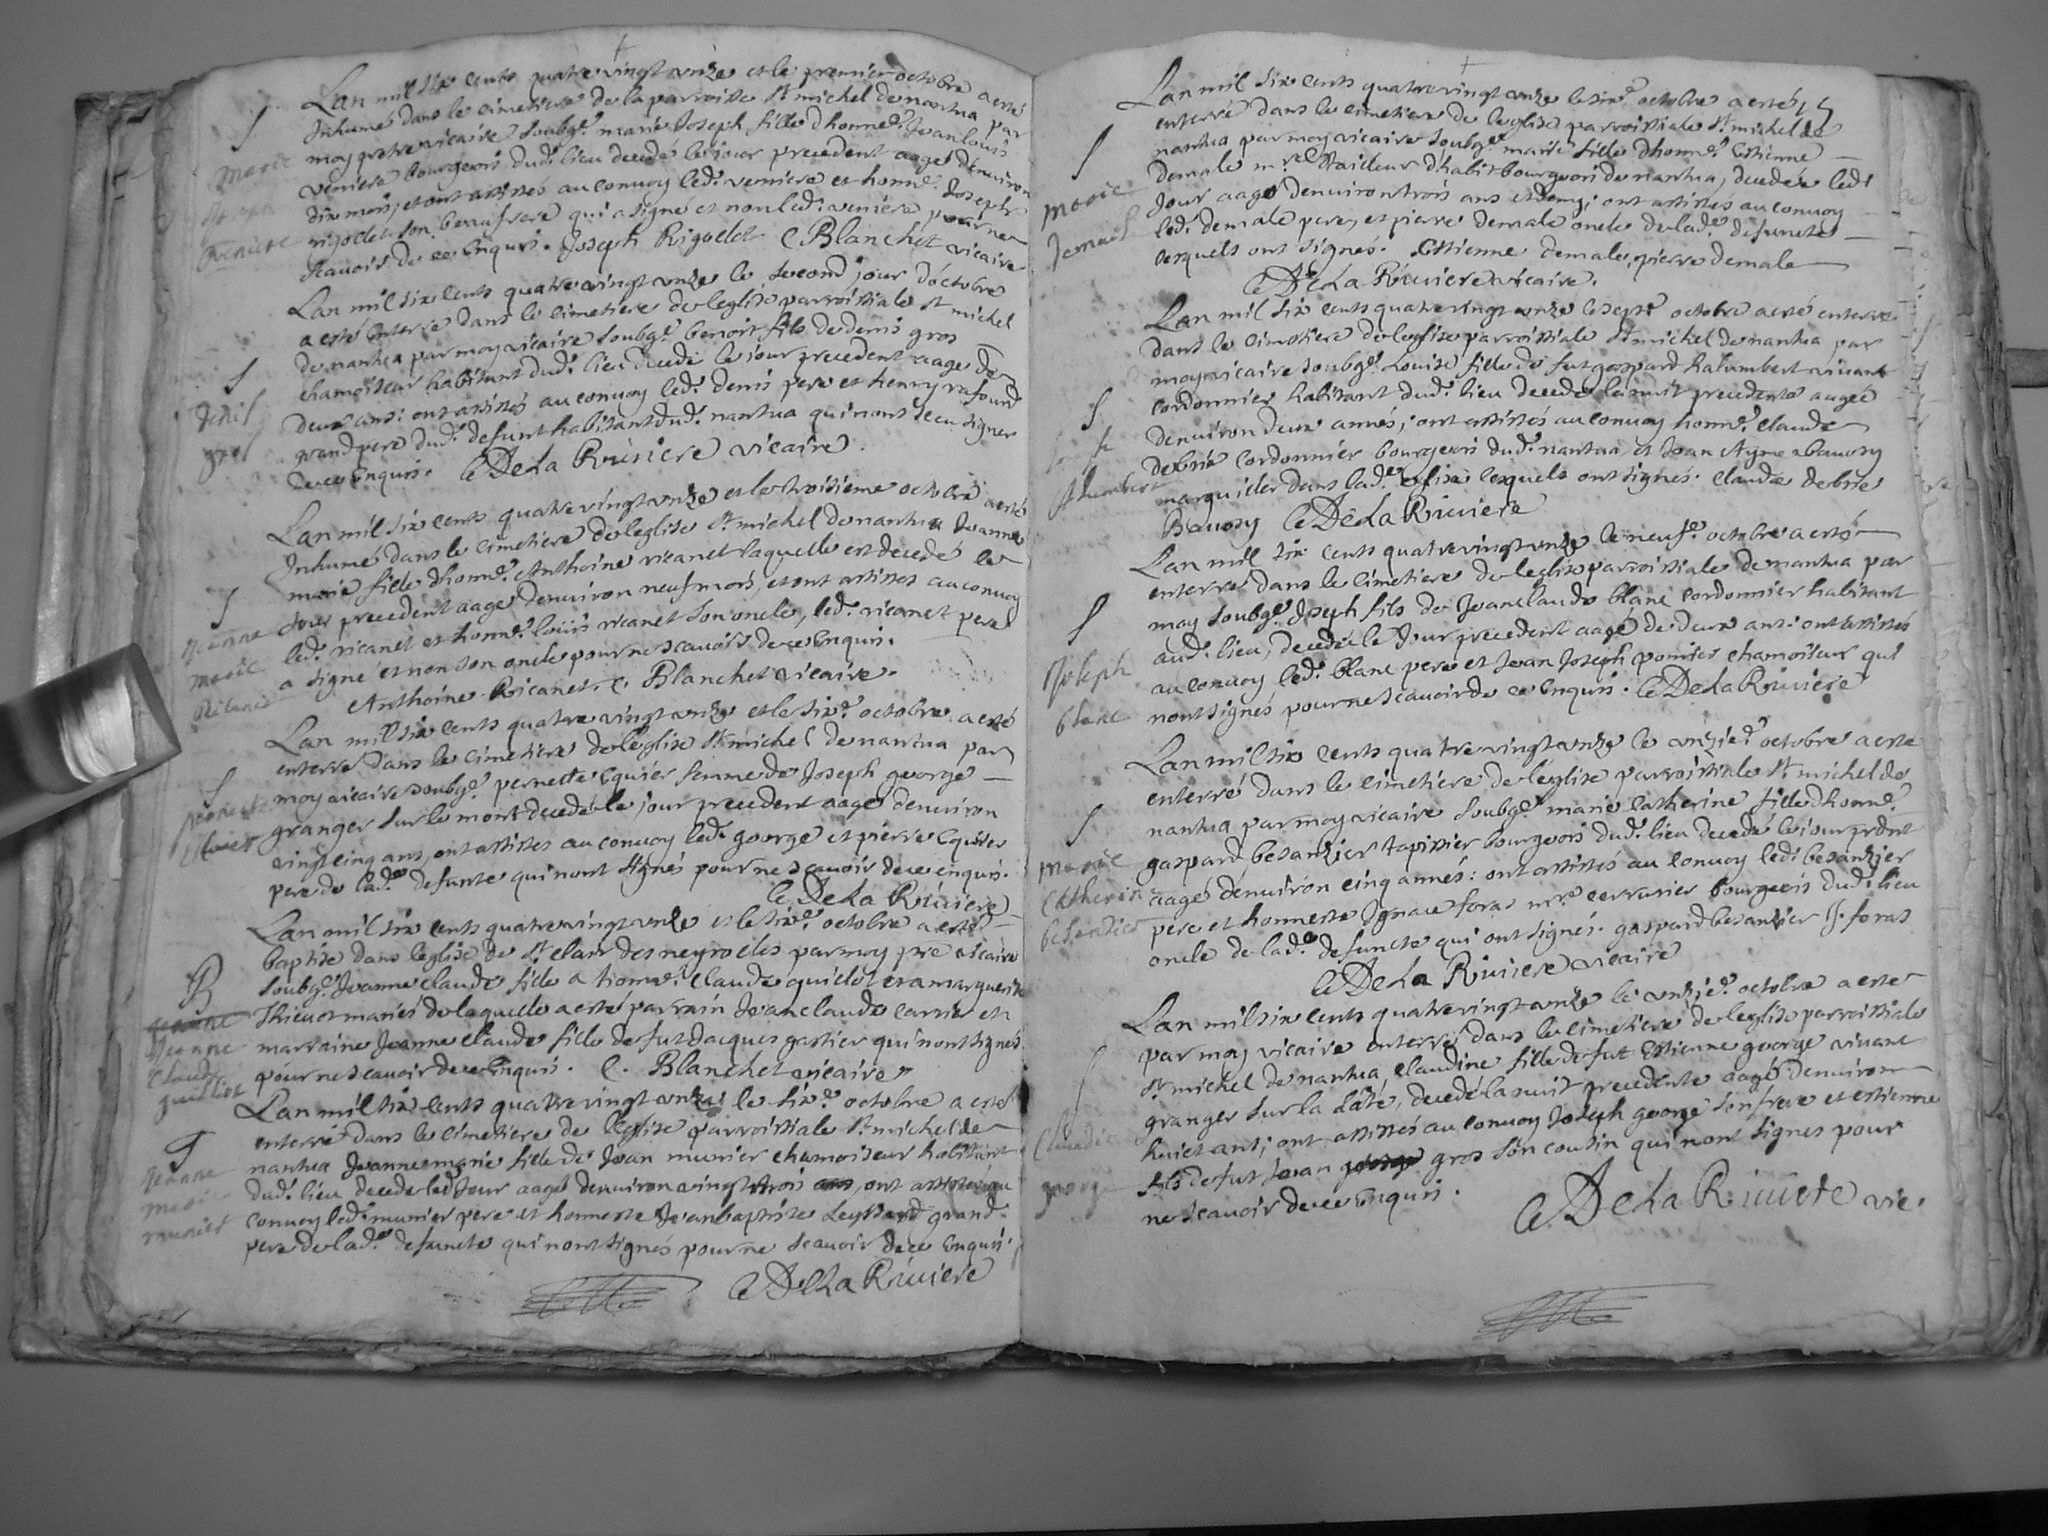 Lan mil six cents quatre vingt unze et le premier octobre a esté
Inhumé dans le cimetiere de la parroisse St michel de nantua par
moy pretre vicaire soubgé. marie Joseph fille dhonne. Jean louis
veniere bourgeois dud. lieu decedé le jour precedent aagé denviron
dix mois, et ont assistés au convoy led. veniere et honne. Joseph
rigollet son beaufrere qui a signé et non led. veniere pour ne
scavoir de ce Enquis. Joseph Rigollet C Blanchet vicaire
S
marie
Joseph
veniere
Lan mil six cents quatre vingt unze le second jour doctobre
a esté enterré dans le cimetiere de leglise parroissiale st michel
de nantua par moy vicaire soubgé. benoit fils de denis gros
chamoiseur habitant dud. lieu decedé le jour precedent aagé de
deux ans: ont assistés au convoy led. denis pere et henry rafourd
grand pere dud. defunt habitant dud. nantua qui nont sceu signer
de ce Enquis. C DeLa Riviere vicaire.
S
denis
gros
Lan mil six cents quatre vingt unze et le troisieme octobre a esté
Inhumé dans le cimetiere de leglise St michel de nantua Jeanne
marie fille dhonne. Anthoine ricanet laquelle est decedé le
Jour precedent aagé denviron neuf mois, et ont assistes au convoy
led. ricanet et honne. louis ricanet son oncle, led. ricanet pere
a signé et non son oncle pour ne scavoir de ce Enquis.
Anthoine Ricanet. C. Blanchet vicaire.
S
Jeanne
marie
Ricanet
Lan mil six cents quatre vingt unze et le sixe. octobre a esté
enterré dans le cimetiere de leglise St michel de nantua par
moy vicaire soubgé. pernette Equier femme de Joseph george
granger sur le mont decedé le jour precedent aagé denviron
vingt cinq ans, ont assistes au convoy led. george et pierre Equier
pere de lad. defunte qui nont signés pour ne scavoir de ce enquis.
C DeLa Riviere
S
pernette
Lan mil six cents quatre vingt unze et le sixe. octobre a esté
baptisé dans leglise de St clair des neyrolles par moy pre vicaire
soubgé. Jeanne claude fille a honne. Claude quillot et a marguerite
Thievot mariés de laquelle a esté parrain Jean claude carrie et
marraine Jeanne claude fille de fut Jacques gastier qui nont signés
pour ne scavoir de ce Enquis. C. Blanchet vicaire
B
Jeanne
Jeanne
Claude
quilliot
Lan mil six cents quatre vingt unze le sixe. octobre a esté
enterré dans le cimetiere de leglise parroissiale St michel de
nantua Jeanne marie fille de Jean munier chamoiseur habitant
dud. lieu decedé led. Jour aagé denviron vingt trois ans, ont assistés au
convoy led. munier pere et honneste Jean baptiste Leyssard grand
pere de lad. defuncte qui nont signés pour ne scavoir de ce Enquis.
C DeLa Riviere
S
Jeanne
marie
munier
Lan mil six cents quatre vingt unze le sixe. octobre a esté
enterré dans le cimetiere de leglise parroissiale St michel de
nantua par moy vicaire soubgé. marie fille dhonne. Estienne
demale mre tailleur dhabit bourgeois de nantua, decedée led.
Jour aagé denviron trois ans et demy; ont assistés au convoy
led. demale pere, et pierre demale oncle de lad. defuncte
lesquels ont signés. Estienne demale, pierre demale
C DeLa Riviere vicaire.
S
marie
demale
Lan mil six cents quatre vingt unze le septe. octobre a esté enterré
dans le cimetiere de leglise parroissiale St michel de nantua par
moy vicaire soubgé. Louise fille de fut gaspard halumbert vivant
cordonnier habitant dud. lieu decedé la nuit precedente aagée
denviron deux annés; ont assistés au convoy honne. claude
debrie cordonnier bourgeois dud. nantua et Jean Ayme bavosy
marguiller dans lad. Eglise lesquels ont signés. Claude debrie
Bavosy C DeLa Riviere
S
Lan mil six cents quatre vingt unze le neufe. octobre a esté
enterré dans le cimetiere de leglise parroissiale de nantua par
moy soubgé. Joseph fils de Jean claude blanc cordonnier habitant
aud. lieu, decedé le Jour precedent aagé de deux ans: ont assistés
au convoy led. blanc pere et Jean Joseph chamoiseur qui
nont signés pour ne scavoir de ce Enquis. C DeLa Riviere
S
Joseph
blanc
Lan mil six cents quatre vingt unze le unzie. octobre a esté
enterré dans le cimetiere de leglise parroissiale St michel de
nantua par moy vicaire soubgé. marie catherine fille dhonne.
gaspard besanzier tapissier bourgeois dud. lieu decedé le jour prdnt
aagé denviron cinq annés: ont assistés au convoy led. besanzier
pere et honneste Ignace foras mre serrurier bourgeois dud. lieu
oncle de lad. defuncte qui ont signés. gaspard besanzier J. foras
C DeLa Riviere vicaire
S
marie
Catherine
besanzier
Lan mil six cents quatre vingt unze le unzie. octobre a esté
par moy vicaire enterré dans le cimetiere de leglise parroissiale
St michel de nantua, claudine fille de fut Estienne george vivant
granger sur la Laté, decedé la nuit precedente aagé denviron
huict ans; ont assistés au convoy Joseph george son frere et estienne
fils de fut Jean george gros son cousin qui nont signes pour
ne scavoir de ce Enquis. C DeLa Riviere vic.
S
Claudine
george